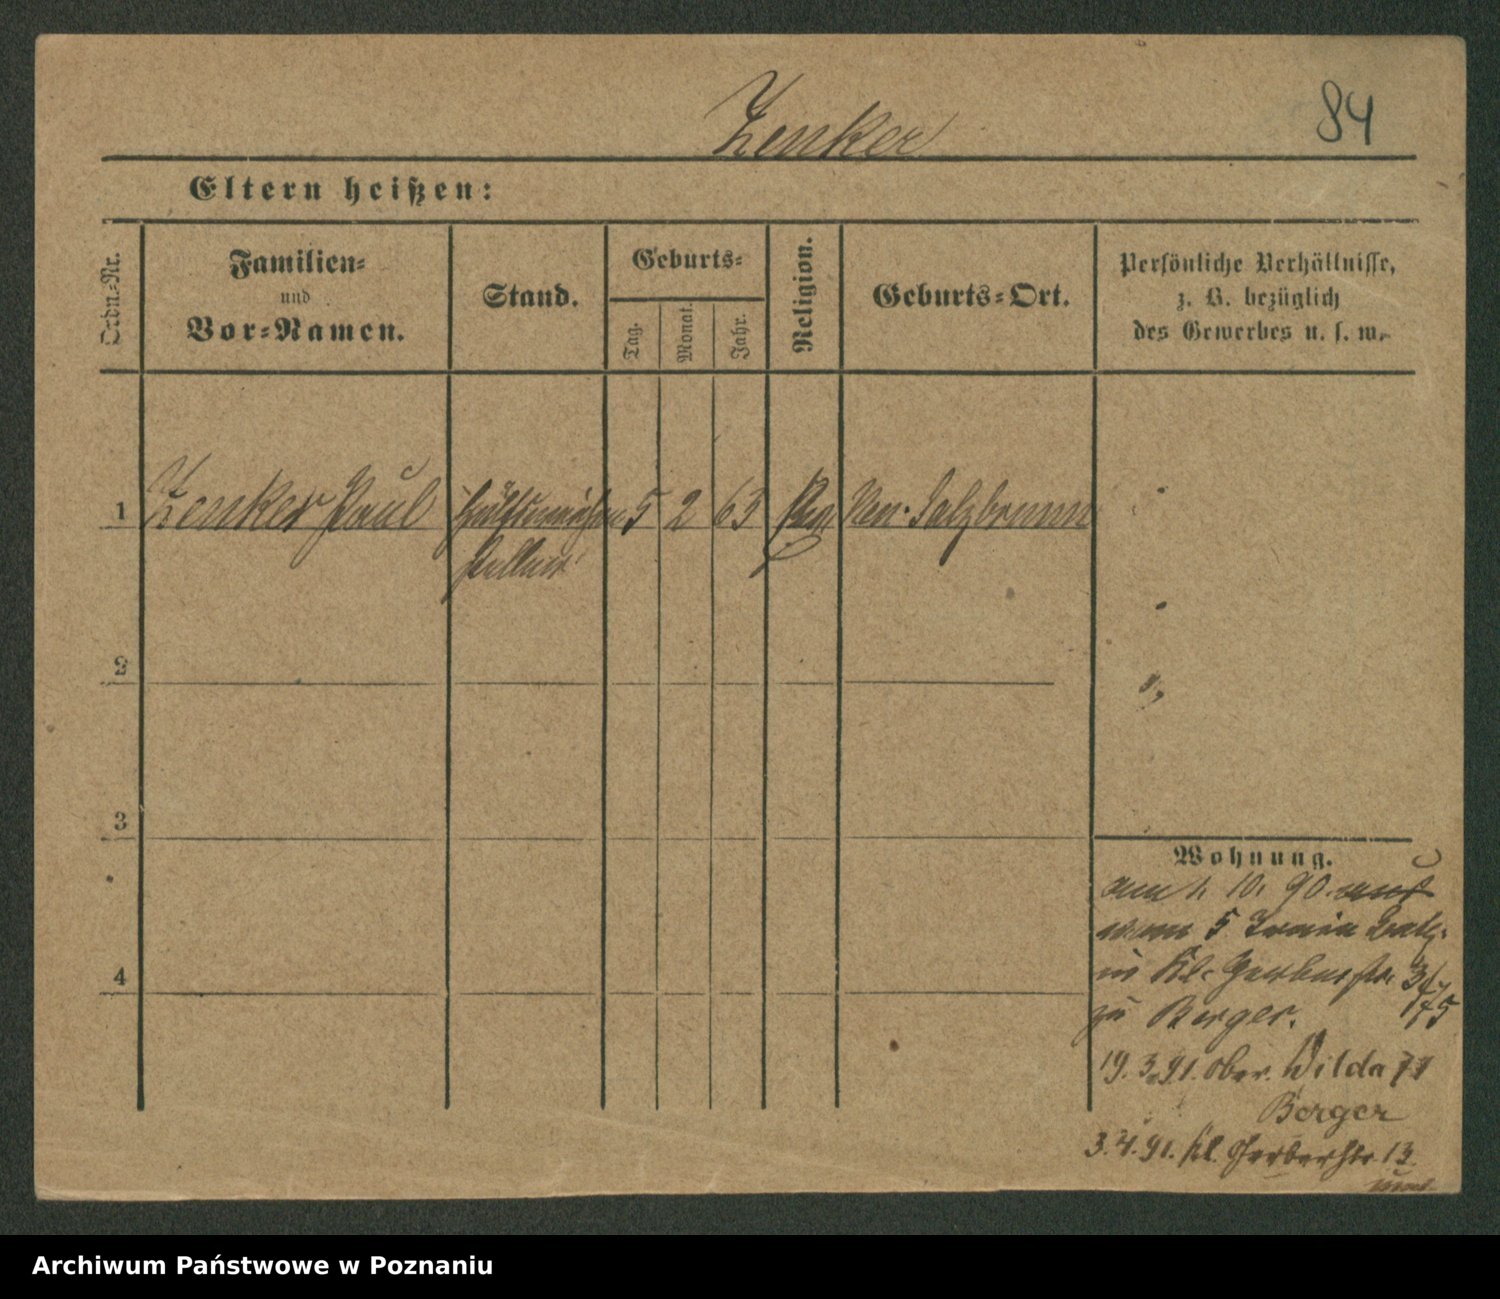 Zenker
84
Eltern heißen:
Ordn.-Nr.
Familien-
und
Vor-Namen.
Stand.
Geburts-
Tag.
Monat.
Jahr.
Religion.
Geburts-Ort.
Persönliche Verhältnisse,
z. B. bezüglich
des Gewerbes u. s. w.
1 Zenker Paul 5 2 63 Neu-Salzbrunn
2
3
4
Wohnung.
am 1. 10. 90
5
in Kl. Gerberstr.
zu Berger.
19. 3. 91. Ober. Wilda
Berger
3. 4. 91. Kl. Gerberstr 13